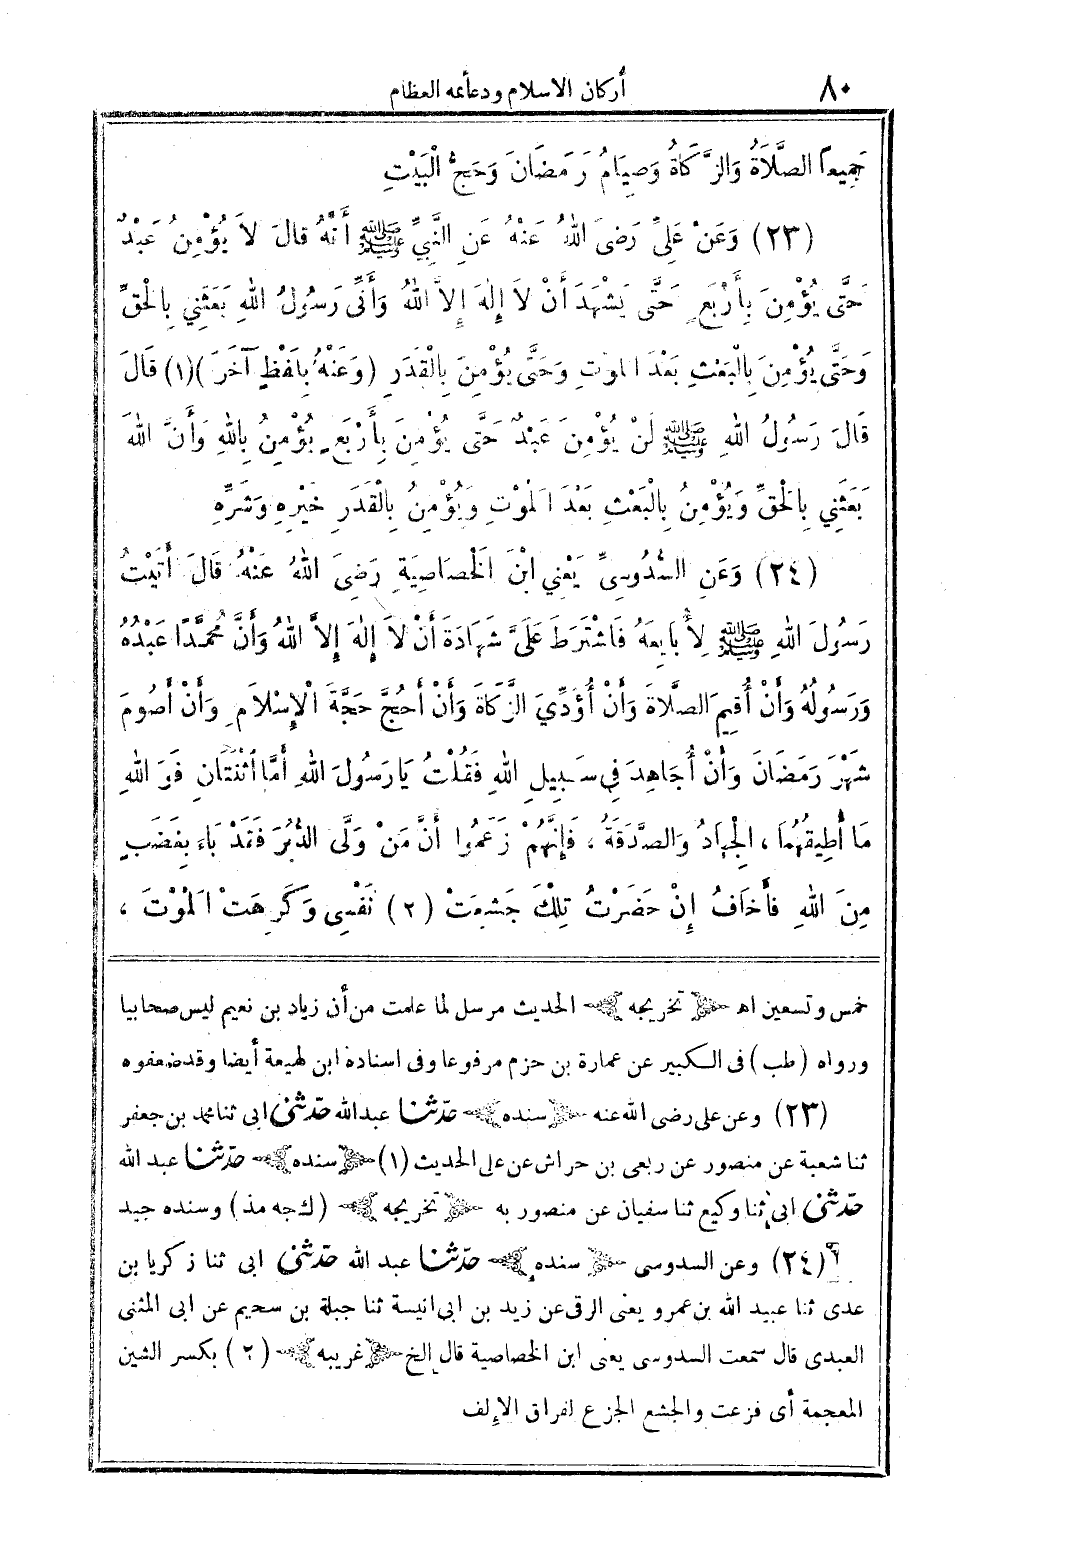 ٨٠ أركان الاسلام ودعائمه العظام
جَمِيعًا الصَّلَاةُ وَالزَّكَاةُ وَصِيَامُ رَمَضَانَ وَحَجُّ الْبَيْتِ
(٢٣) وَعَنْ عَلِيٍّ رَضِىَ اللهُ عَنْهُ عَنِ النَّبِيِّ ﷺ أَنَّهُ قَالَ لَا يُؤْمِنُ عَبْدٌ
حَتَّى يُؤْمِنَ بِأَرْبَعٍ حَتَّى يَشْهَدَ أَنْ لَا إِلٰهَ إِلَّا اللهُ وَأَنِّى رَسُولُ اللهِ بَعَثَنِي بِالْحَقِّ
وَحَتَّى يُؤْمِنَ بِالْبَعْثِ بَعْدَ الْمَوْتِ وَحَتَّى يُؤْمِنَ بِالْقَدَرِ (وَعَنْهُ بِلَفْظٍ آخَرَ)(١) قَالَ
قَالَ رَسُولُ اللهِ ﷺ لَنْ يُؤْمِنَ عَبْدٌ حَتَّى يُؤْمِنَ بِأَرْبَعٍ يُؤْمِنُ بِاللهِ وَأَنَّ اللهَ
بَعَثَنِي بِالْحَقِّ وَيُؤْمِنُ بِالْبَعْثِ بَعْدَ الْمَوْتِ وَيُؤْمِنُ بِالْقَدَرِ خَيْرِهِ وَشَرِّهِ
(٢٤) وَعَنِ السَّدُوسِىِّ يَعْنِي ابْنَ الْخَصَاصِيَةِ رَضِىَ اللهُ عَنْهُ قَالَ أَتَيْتُ
رَسُولَ اللهِ ﷺ لِأُبَايِعَهُ فَاشْتَرَطَ عَلَىَّ شَهَادَةَ أَنْ لَا إِلٰهَ إِلَّا اللهُ وَأَنَّ مُحَمَّدًا عَبْدُهُ
وَرَسُولُهُ وَأَنْ أُقِيمَ الصَّلَاةَ وَأَنْ أُؤَدِّيَ الزَّكَاةَ وَأَنْ أَحُجَّ حَجَّةَ الْإِسْلَامِ وَأَنْ أَصُومَ
شَهْرَ رَمَضَانَ وَأَنْ أُجَاهِدَ فِي سَبِيلِ اللهِ فَقُلْتُ يَا رَسُولَ اللهِ أَمَّا اثْنَتَانِ فَوَ اللهِ
مَا أُطِيقُهُمَا ، الْجِهَادُ وَالصَّدَقَةُ ، فَإِنَّهُمْ زَعَمُوا أَنَّ مَنْ وَلَّى الدُّبُرَ فَقَدْ بَاءَ بِغَضَبٍ
مِنَ اللهِ فَأَخَافُ إِنْ حَضَرْتُ تِلْكَ جَشِعَتْ (٢) نَفْسِى وَكَرِهَتْ الْمَوْتَ ،
خمس وتسعين اهـ ﴿تخريجه﴾ الحديث مرسل لما علمت من أن زياد بن نعيم ليس صحابيا
ورواه (طب) فى الكبير عن عمارة بن حزم مرفوعا وفى اسناده ابن لهيعة أيضا وقد ضعفوه
(٢٣) وعن على رضى الله عنه ﴿سنده﴾ حدّثنا عبد الله حدّثنى ابى ثنا محمد بن جعفر
ثنا شعبة عن منصور عن ربعى بن حراش عن على الحديث (١) ﴿سنده﴾ حدّثنا عبد الله
حدّثنى ابى ثنا وكيع ثنا سفيان عن منصور به ﴿تخريجه﴾ (ك جه مذ) وسنده جيد
(٢٤) وعن السدوسى ﴿سنده﴾ حدّثنا عبد الله حدّثنى ابى ثنا زكريا بن
عدى ثنا عبيد الله بن عمرو يعنى الرقى عن زيد بن ابى انيسة ثنا جبلة بن سحيم عن ابى المثنى
العبدى قال سمعت السدوسى يعنى ابن الخصاصية قال إلخ ﴿غريبه﴾ (٢) بكسر الشين
المعجمة أى فزعت والجشع الجزع لفراق الإلف